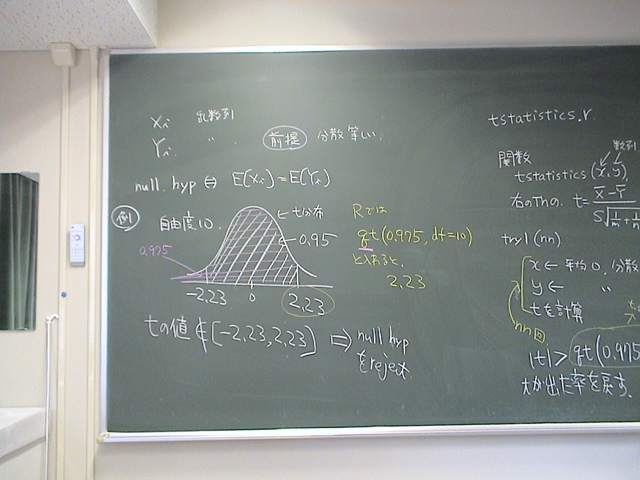 Xi 乱数列
Yi 〃
前提 分散等しい
null. hyp ⇔ E(Xi) = E(Yi)
例 自由度10.
←t分布
0.95
0.975
-2.23 0 2.23
Rでは
qt(0.975, df=10)
と入れると、
2.23
tの値 ∉ [-2.23, 2.23] ⇒ null hyp
をreject.
tstatistics.r
数列
関数
tstatistics(x, y)
右のThの. t = X̄-Ȳ
try1(nn)
x ← 平均0, 分散
y ← 〃
tを計算
nn回
|t| > qt(0.975
大が出た率を戻す.